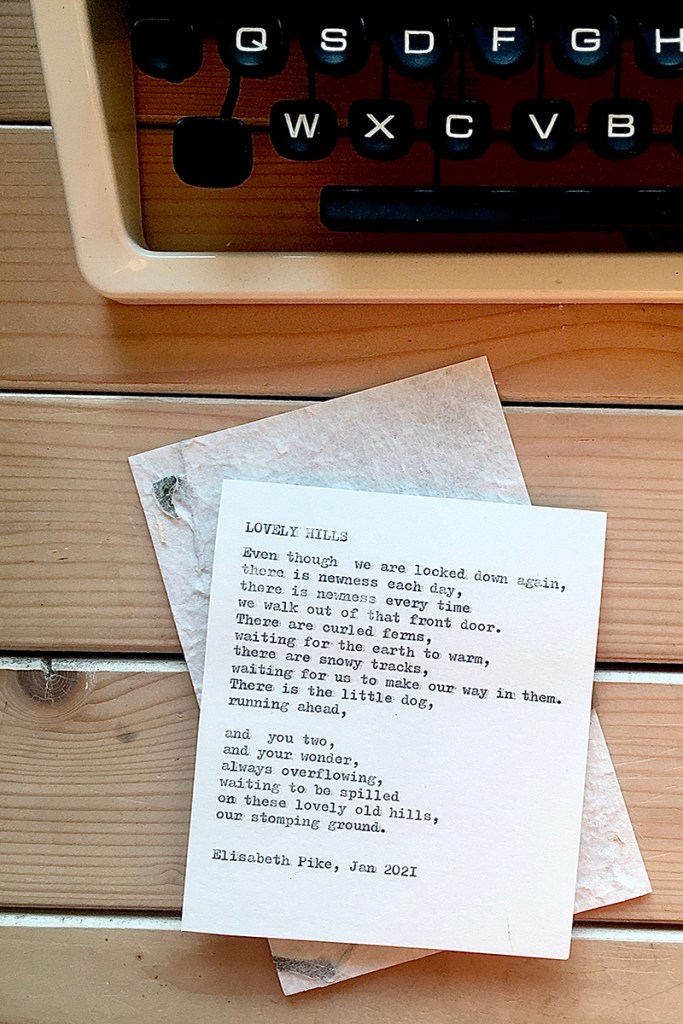 Q S D F G H
W X C V B
LOVELY HILLS
Even though we are locked down again,
there is newness each day,
there is newness every time
we walk out of that front door.
There are curled ferns,
waiting for the earth to warm,
there are snowy tracks,
waiting for us to make our way in them.
There is the little dog,
running ahead,
and you two,
and your wonder,
always overflowing,
waiting to be spilled
on these lovely old hills,
our stomping ground.
Elisabeth Pike, Jan 2021